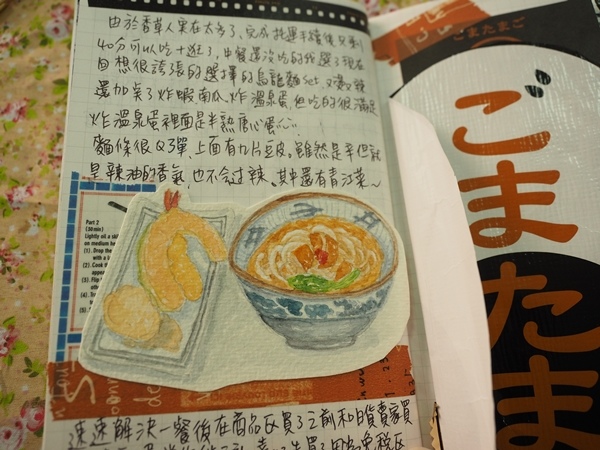 由於香草人實在太多了,完成托運手續後只剩
40分可以吃+逛了,中餐還沒吃的我選了現在
回想很誇張的選擇的烏龍麵set,又 又辣
還加点了炸蝦南瓜炸溫泉蛋但吃的很滿足
炸溫泉蛋裡面是半熟唐心蛋
麵條很Q彈,上面有 片豆皮。雖然是辛但就
是辣油的香氣,也不会过辣。其中還有青江菜~
Part 2
(30 min)
Lightly oil a
on medium
(1). Drop the
(2). Cook
(3). Flip
速速解決一餐後在商品区買了之前和日貨賣家買
ごまたまご
ごまたま